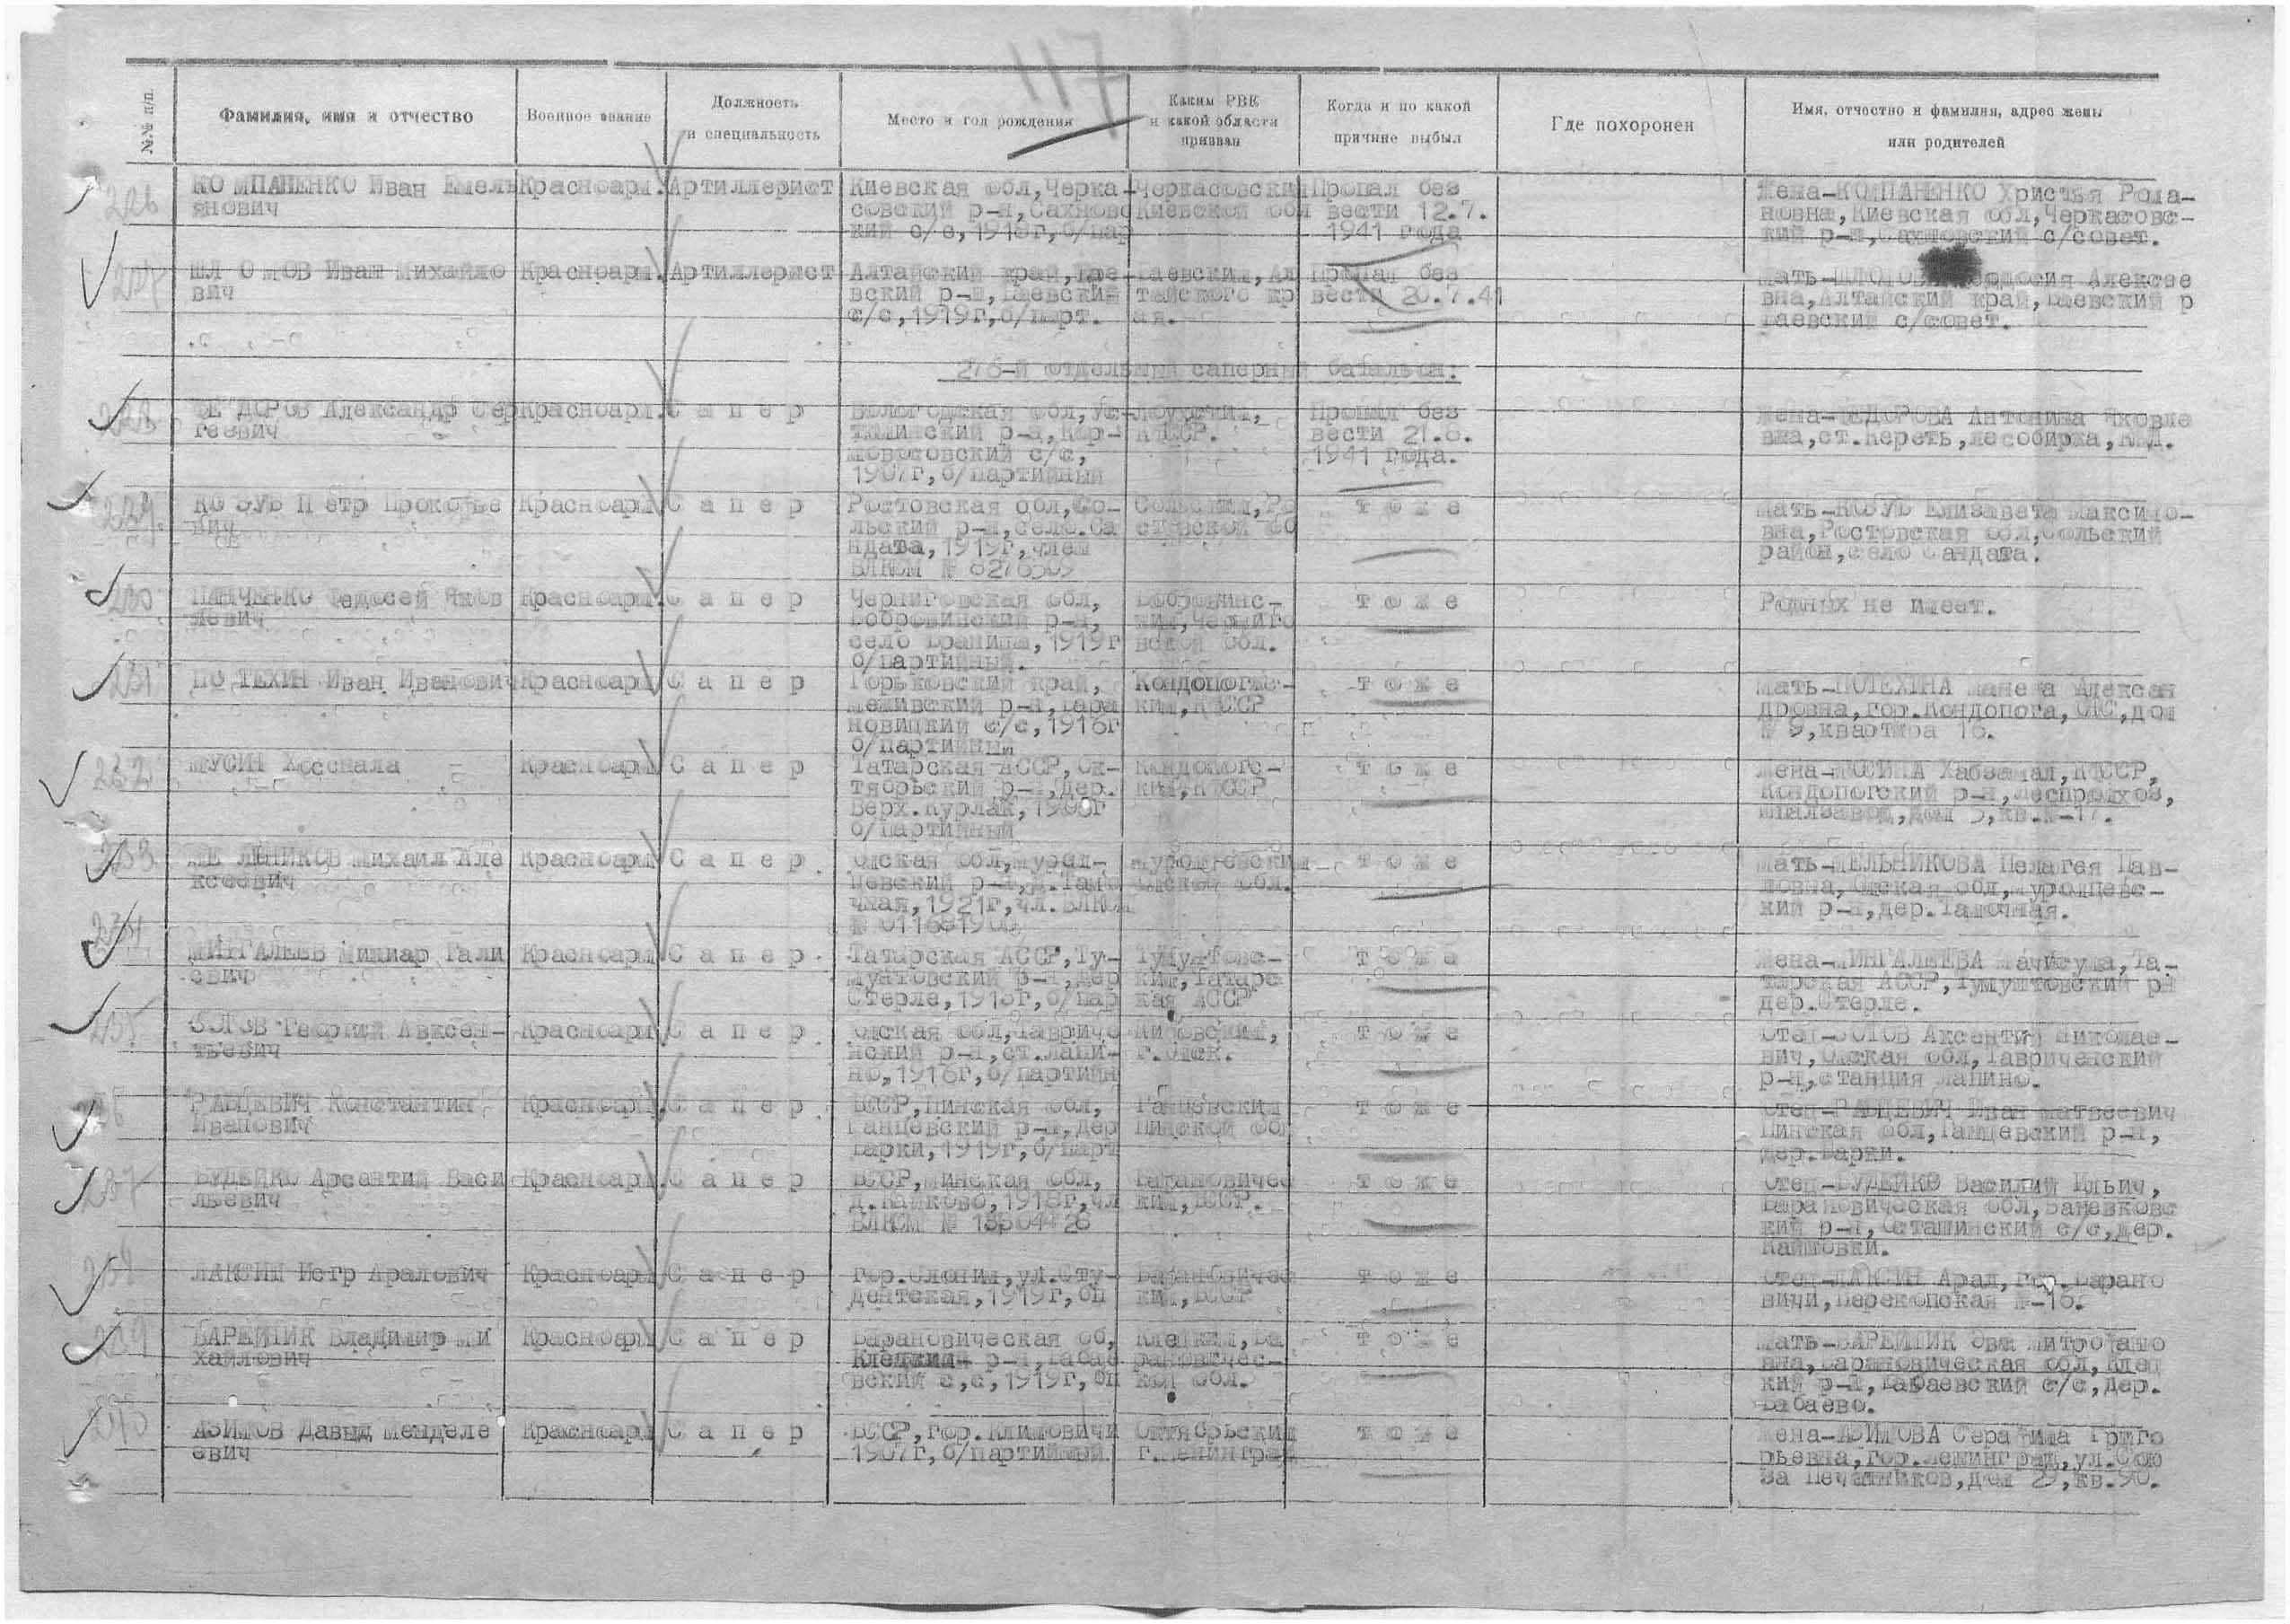 117
№№ п/п.
Фамилия, имя и отчество
Военное звание
Должность
и специальность
Место и год рождения
Каким РВК
и какой области
призван
Когда и по какой
причине выбыл
Где похоронен
Имя, отчество и фамилия, адрес жены
или родителей
226
КОМПАНЕНКО Иван Емель
янович
Красноарм.
Артиллерист
Киевская обл,Черка-
совский р-н,Сахновс
кий с/с,1918г,б/пар
Черкасовский
Киевской обл
Пропал без
вести 12.7.
1941 года
Жена-КОМПАНЕНКО Христья Рома-
новна,Киевская обл,Черкасовс-
кий р-н,Сахновский с/совет.
227
ШЛОМОВ Иван Михайло
вич
Красноарм.
Артиллерист
Алтайский край,Бае-
вский р-н,Баевский
с/с,1919г,б/парт.
Баевским,Ал
тайского кр
ая.
Пропал без
вести 20.7.41
Алексее
вна,Алтайский край,Баевский р
Баевский с/совет.
отдельный саперный батальон:
228
ФЕДОРОВ Александр Сер
геевич
Красноарм.
Сапер
Вологодская обл,Ус-
р-н,
с/с,
1907г,б/партийный
КФССР.
Пропал без
вести 21.8.
1941 года.
Жена-ФЕДОРОВА Антонина Яковле
вна,ст.Кереть,лесобиржа,
229
КОЗУБ Петр Прокофье
вич
Красноарм
Сапер
Ростовская обл,Со-
льский р-н,село.Са
ндата,1919г,член
ВЛКСМ № 8276509
Сольским,Ро
стовской об
тоже
Мать-КОЗУБ Елизавета Максимо-
вна,Ростовская обл,Сольский
район,село Сандата.
230
ПАНЧЕНКО Федосей Яков
левич
Красноарм.
Сапер
Черниговская обл,
Бобровинский р-н,
село Браница,1919г
б/партийный.
Бобровинс-
ким,Черниго
вской обл.
тоже
Родных не имеет.
231
ПОТЕХИН Иван Иванович
Красноарм
Сапер
Горьковский край,
р-н,Бара
новицкий с/с,1918г
б/партийный
Кондопогже-
ким,КФССР
тоже
Мать-ПОТЕХИНА Манефа Алексан
дровна,гор.Кондопога,ОПС,дом
№ 9,квартира 16.
232
МУСИН
Красноарм
Сапер
Татарская АССР,Ок-
тябрьский р-н,дер.
Верх.Курлак,
б/партийный
Кондопогс-
ким,КФССР
тоже
Жена-МУСИНА Хабзамал,КФССР,
Кондопогский р-н,леспромхоз,
шпалзавод,дом 5,кв.№-17.
233
МЕЛЬНИКОВ Михаил Але
ксеевич
Красноарм
Сапер
Омская обл,Муром-
цевский р-н,д.Тамо
чная,1921г,чл.ВЛКСМ
Муромцевским
Омской обл.
тоже
Мать-МЕЛЬНИКОВА Пелагея Пав-
ловна,Омская обл,Муромцевс-
кий р-н,дер.Тамочная.
234
МИНГАЛЕЕВ Минмар Гали
евич
Красноарм
Сапер
Татарская АССР,Ту-
мутовский р-н,дер
Стерле,1918г,б/пар
Тумутовс-
ким,Татарс
кая АССР
тоже
Жена-МИНГАЛЕЕВА Та-
тарская АССР,Тумутовский рн
дер.Стерле.
235
ЗОТОВ Георгий Авксен-
тьевич
Красноарм
Сапер
Омская обл,Тавриче
нский р-н,ст.Лапи-
но,1918г,б/партийн
Кировским,
г.Омск.
тоже
Отец-ЗОТОВ Аксентий Николае-
вич,Омская обл,Тавриченский
р-н,станция Лапино.
РАБЦЕВИЧ Константин
Иванович
Красноарм.
Сапер
БССР,Пинская обл,
Ганцевский р-н,дер
Барки,1919г,б/парт
Ганцевским
Пинской обл
тоже
Отец-РАБЦЕВИЧ Иван Матвеевич
Пинская обл,Ганцевский р-н,
дер.Барки.
237
БУДЕЙКО Арсентий Васи
льевич
Красноарм.
Сапер
БССР,Минская обл,
1918г,чл
ВЛКСМ №
Барановичес
ким,БССР.
тоже
Отец-БУДЕЙКО Василий Ильич,
Барановическая обл,
кий р-н,Осташинский с/с,дер.
238
ЛАКСИН Петр Аралович
Красноарм
Сапер
гор.Слоним,ул.Сту-
дентская,1919г,бп
Барановичес
ким,БССР
тоже
Отец-ЛАКСИН Арал,гор.Барано
вичи,Перекопская №-16.
239
ВАРЕЙНИК Владимир Ми
хайлович
Красноарм
Сапер
Барановическая об,
Клецкий р-н,Бабае
вский с,с,1919г,бп
Клецким,Ба
рановичес-
кой обл.
тоже
Мать-ВАРЕЙНИК Ева Митрофано
вна,Барановическая обл,Клец
кий р-н,Бабаевский с/с,дер.
Бабаево.
240
АЗИМОВ Давыд Менделе
евич
Красноарм
Сапер
БССР,гор.Климовичи
1907г,б/партийный
Октябрьским
г.Ленинград
тоже
Жена-АЗИМОВА Серафима Григо
рьевна,гор.Ленинград,ул.Сою
за Печатников,дом 29,кв.90.